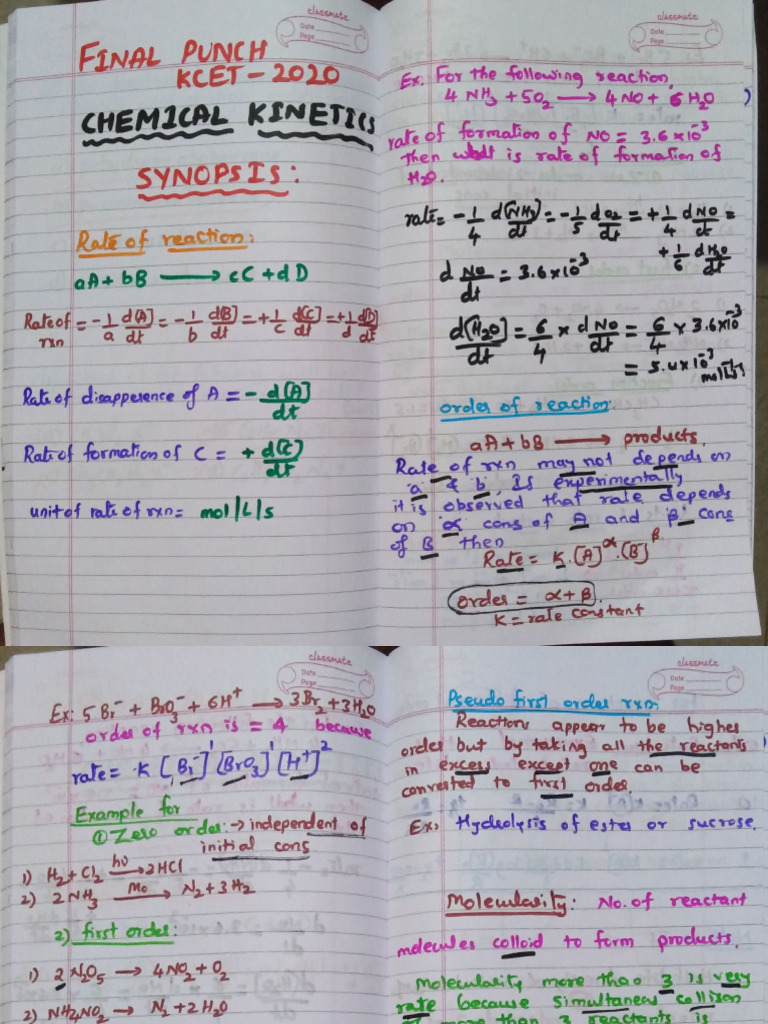 classmate
Date
Page
FINAL PUNCH
KCET-2020
CHEMICAL KINETICS
SYNOPSIS:
Rate of reaction:
aA + bB ⟶ cC + dD
Rate of rxn = -1/a d[A]/dt = -1/b d[B]/dt = +1/c d[C]/dt = +1/d d[D]/dt
Rate of disapperence of A = - d[A]/dt
Rate of formation of C = + d[C]/dt
unit of rate of rxn = mol/L/s
classmate
Date
Page
Ex: For the following reaction,
4 NH3 + 5O2 ⟶ 4NO + 6H2O
rate of formation of NO = 3.6×10^-3
then what is rate of formation of
H2O.
rate = -1/4 d[NH3]/dt = -1/5 dO2/dt = +1/4 dNO/dt =
+1/6 dH2O/dt
d NO/dt = 3.6×10^-3
d[H2O]/dt = 6/4 × dNO/dt = 6/4 × 3.6×10^-3
= 5.4×10^-3
order of reaction:
aA + bB ⟶ products.
Rate of rxn may not depends on
a & b, Is experimentally
it is observed that rate depends
on α cons of A and β cons
of B then
Rate = K.[A]^α.[B]^β
order = α+β.
K = rate constant
classmate
Date
Page
Ex: 5 Br^- + BrO3^- + 6H^+ ⟶ 3Br2 + 3H2O
order of rxn is = 4 because
rate = K [Br^-]^1 [BrO3^-]^1 [H^+]^2
Example for
① Zero order:→ independent of
initial cons
1) H2 + Cl2 ⟶hυ 2HCl
2) 2 NH3 ⟶Mo N2 + 3H2
2) first order:
1) 2 N2O5 ⟶ 4NO2 + O2
2) NH4NO2 ⟶ N2 + 2H2O
classmate
Date
Page
Pseudo first order rxn:
Reactions appear to be higher
order but by taking all the reactants
in excess except one can be
converted to first order.
Ex: Hydrolysis of ester or sucrose.
Molecularity: No. of reactant
molecules colloid to form products.
Molecularity more than 3 is very
rate because simultaneous collison
of more than 3 reactants is